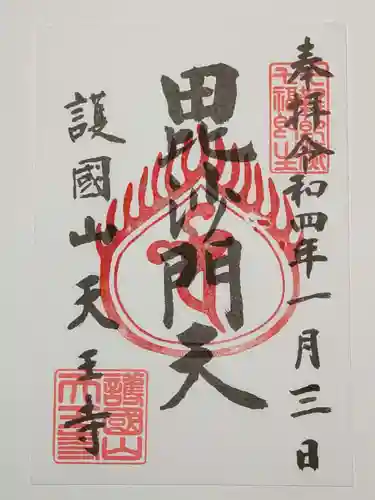 奉拝令和四年一月三日
毘沙門天
護國山天王寺
護國山天王寺